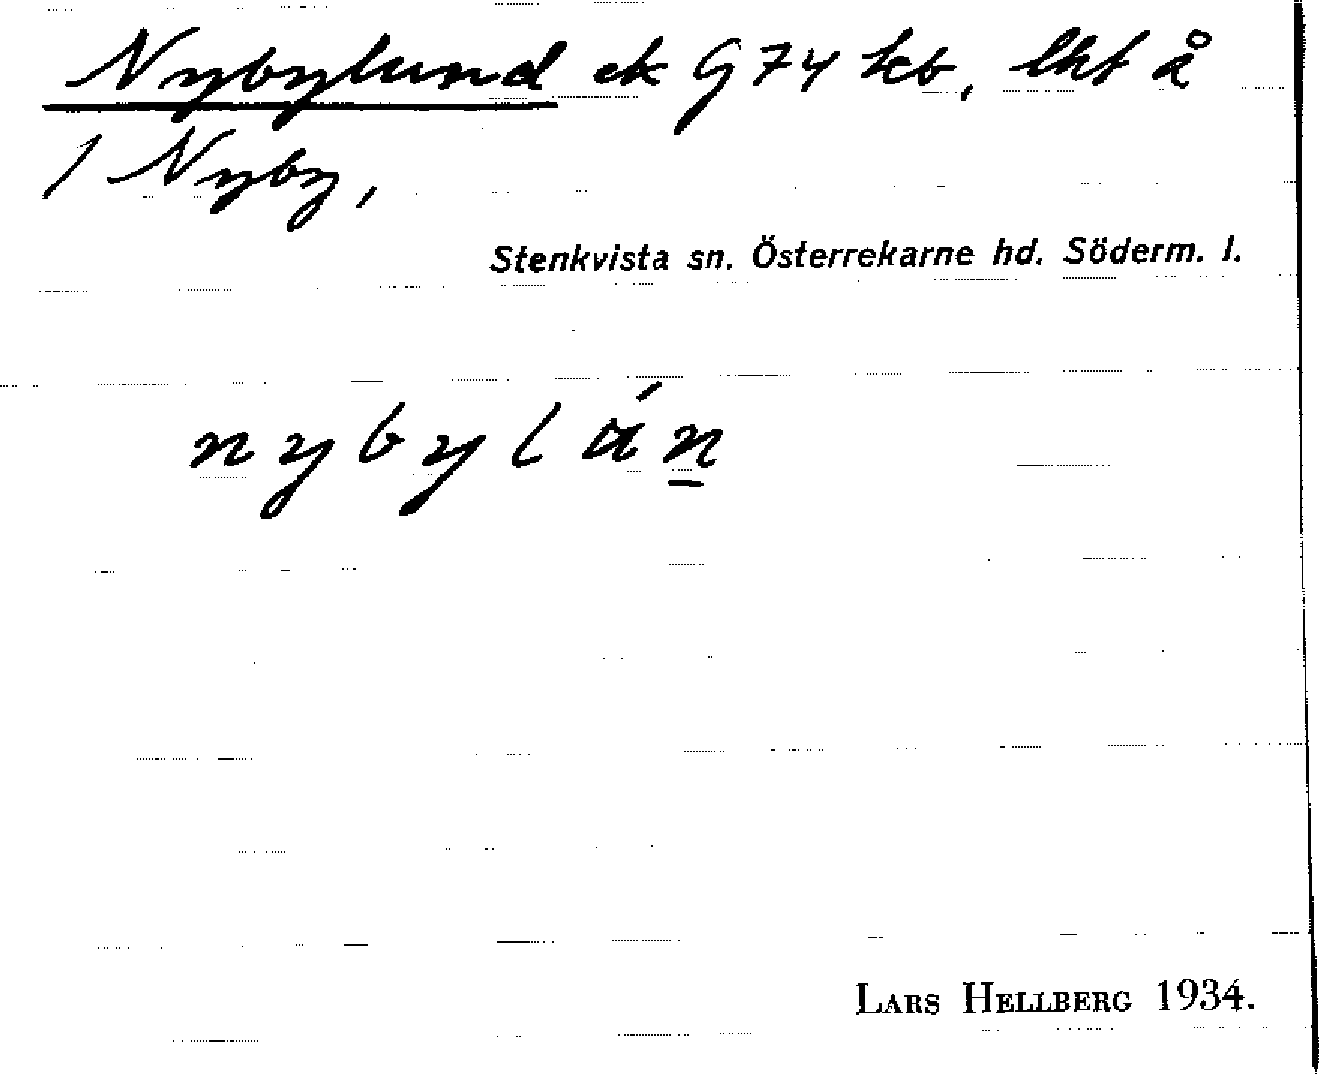 Nybylund ek G 74 kb, lht å
1 Nyby,
Stenkvista sn. Österrekarne hd. Söderm. l.
nybylán
LARS HELLBERG 1934.